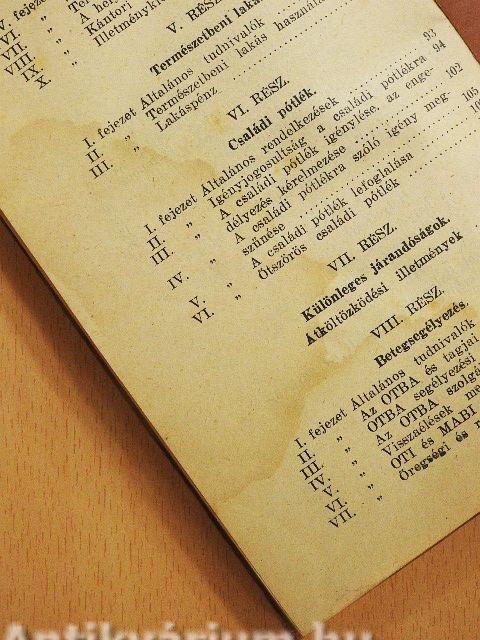 V. fejezet
VI. „ Te
VII. „ A he
VIII. „ Kántori
IX. „ Illetménykie
X.
V. RÉSZ
Természetbeni laká
I. fejezet Általános tudnivalók
II. „ Természetbeni lakás használa
III. „ Lakáspénz
VI. RÉSZ.
Családi pótlék.
I. fejezet Általános rendelkezések 93
II. „ Igényjogosultság a családi pótlékra 94
III. „ A családi pótlék igénylése, az enge-
délyezés kérelmezése 102
IV. „ A családi pótlékra szóló igény meg-
szünése 105
V. „ A családi pótlék lefoglalása 10
VI. „ Ötszörös családi pótlék
VII. RÉSZ.
Különleges járandóságok.
Átköltözködési illetmények
VIII. RÉSZ.
Betegsegélyezés.
I. fejezet Általános tudnivalók
II. „ Az OTBA és tagjai
III. „ OTBA segélyezési
IV. „ Az OTBA szolgá
V. „ Visszaélések me
VI. „ OTI és MABI
VII. „ Öregségi és r
Antikvárium.hu